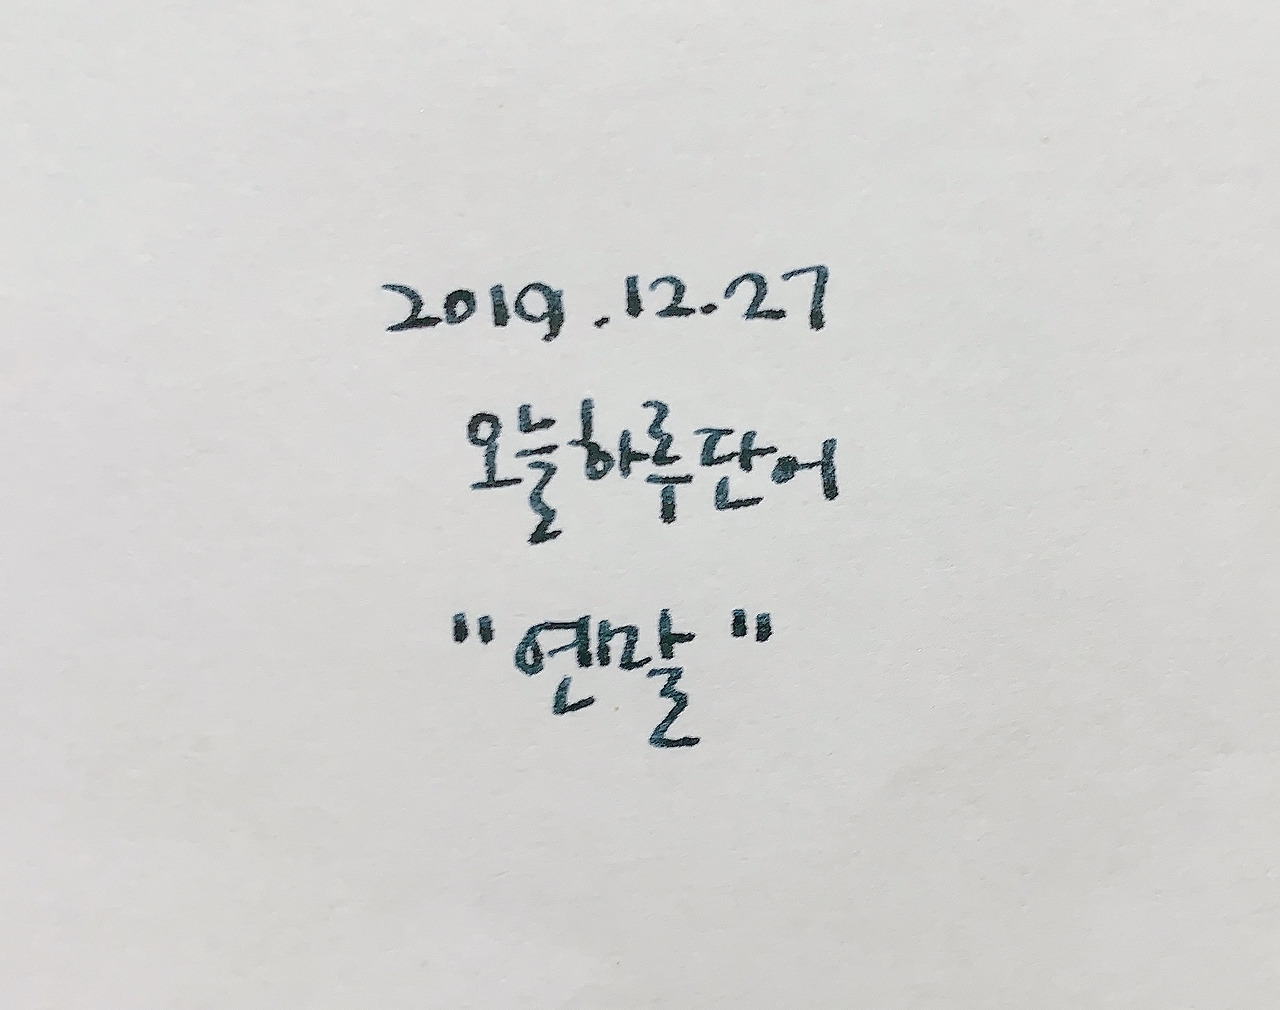 2019.12.27
오늘하루단어
"연말"